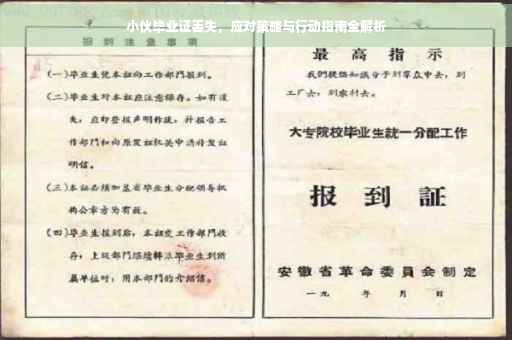 小伙毕业证丢失，应对策略与行动指南全解析
报到注意事项
(一) 毕业生凭本证向工作部门报到。
(二) 毕业生对本证应注意保存。如有遗
失，应即登报声明作废，并报告工
作部门和向原发证机关申请补发证
明信。
(三) 本证必须加盖省毕业生分配领导机
构公章方为有效。
(四) 毕业生报到后，本证交工作部门收
存；上级部门继续转派毕业生到所
属单位时，用本部门的介绍信。
最高指示
我们提倡知识分子到群众中去，到
工厂去，到农村去。
大专院校毕业生统一分配工作
报到证
安徽省革命委员会制定
一九 年 月 日